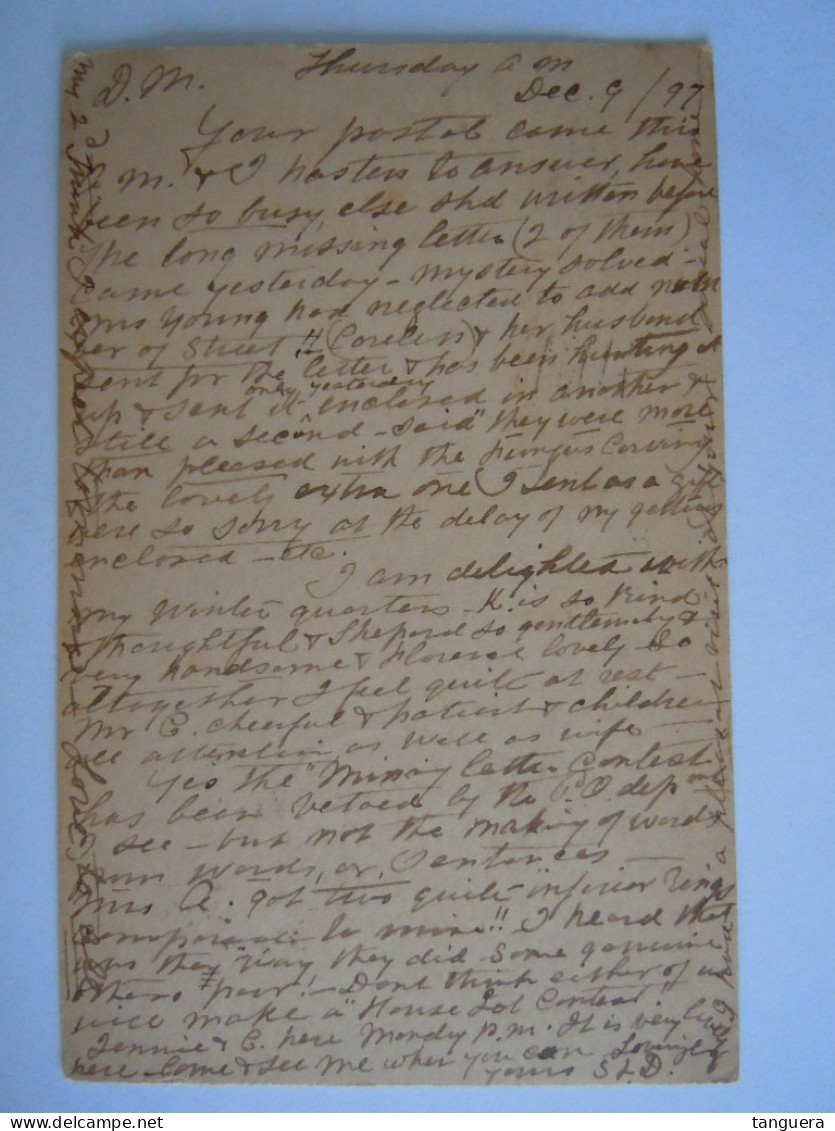 Thursday a m
D. M. Dec. 9 / 97
Your postal came this
a m. & I hasten to answer, have
been so busy, else shd written before
The long missing letter (2 of them)
came yesterday - mystery solved -
Mrs Young had neglected to add num
ber of Street!! (Careless) & her husband
sent for the letter & has been hunting it
only yesterday
up & sent it enclosed in another &
still a second - said "they were more
than pleased with the Fungus Carving
the lovely extra one I sent as a gift
were so sorry at the delay of my getting
enclosed - etc.
I am delighted with
my winter quarters - K. is so kind
thoughtful & Shepard so gentlemanly &
very handsome & Florence lovely So
altogether I feel quite at rest -
Mr C. cheerful & patient & children
all attention as well as wife -
Yes the "Missing letter Contest
has been vetoed by the P.O. dep
I see - but not the making of words
from words, or, Sentences -
Mrs A. got two quite inferior rings
to mine!! I heard that
was the way they did - Some genuine
others "poor"! - Dont think either of us
will make a "House Lot Contest"
Jennie & C. here Monday P.M. It is very
here Come & see me when you can Lovingly
yours S L D.
love to
all
a pleasant visit